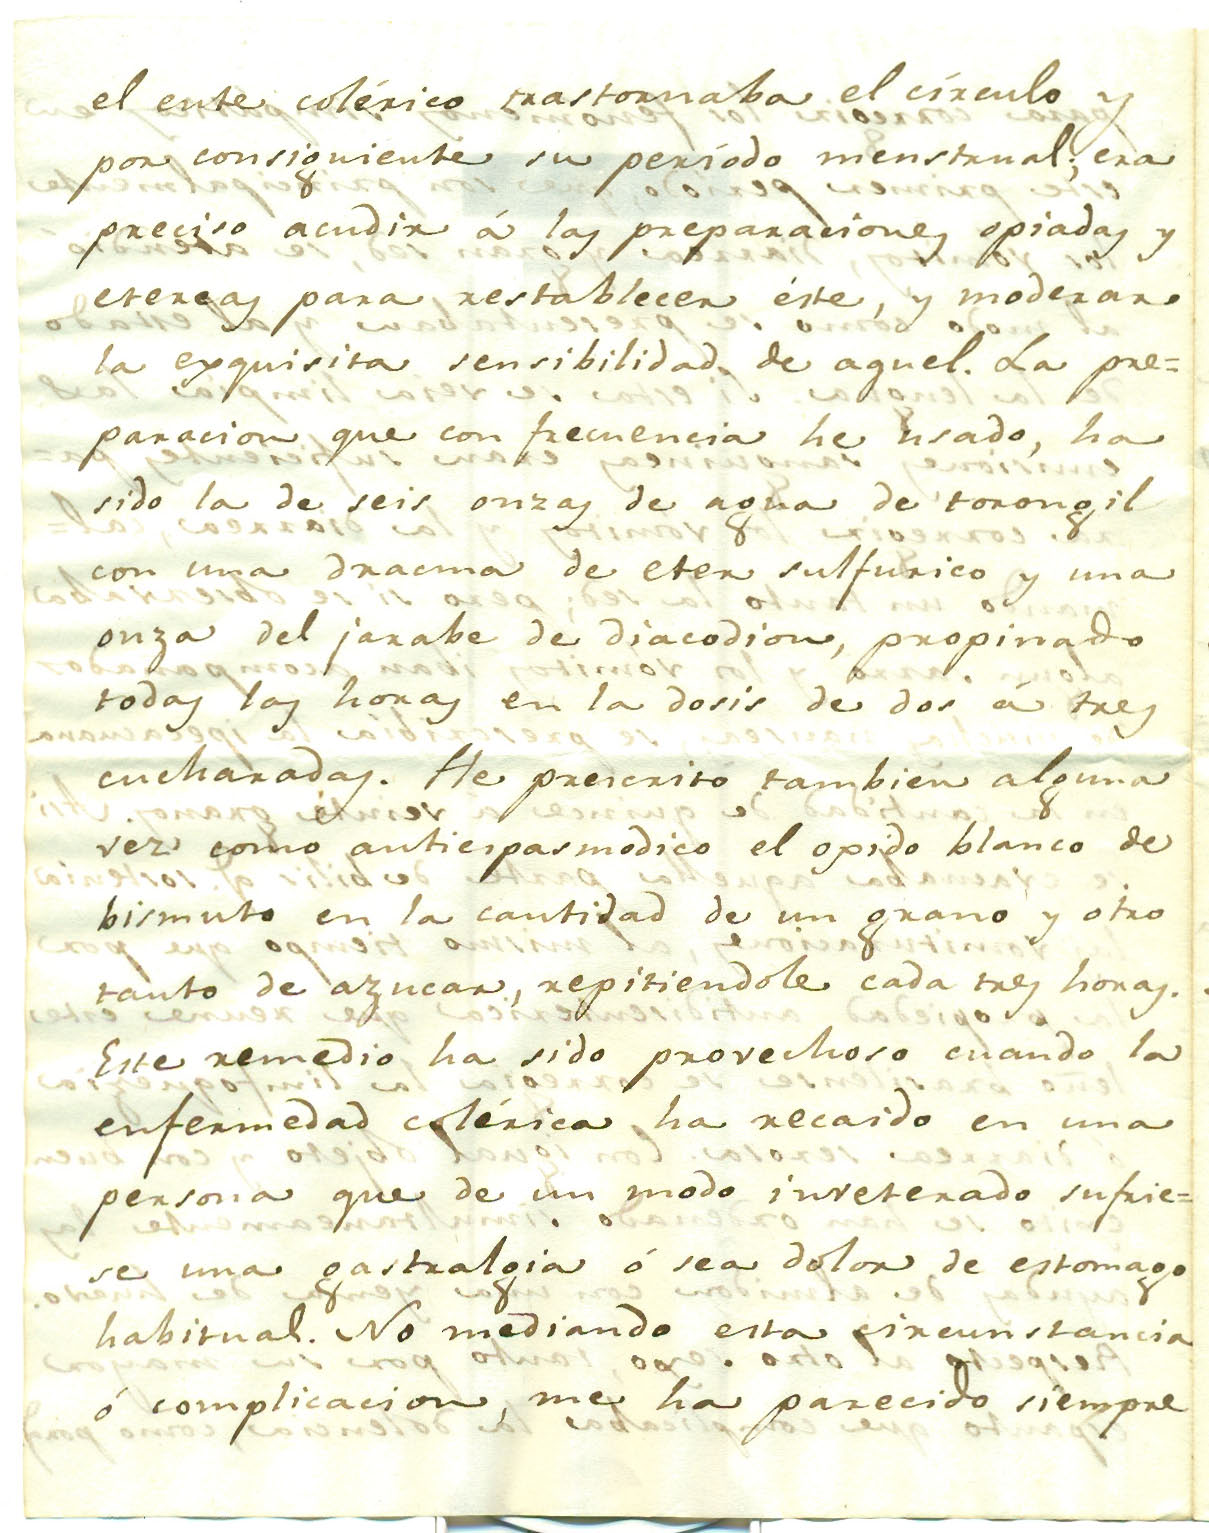 el ente colérico trastornaba el círculo y
por consiguiente su período menstrual; era
preciso acudir á las preparaciones opiadas y
etereas para restablecer éste, y moderar
la exquisita sensibilidad de aquel. La pre=
paracion que con frecuencia he usado, ha
sido la de seis onzas de agua de torongil
con una dracma de eter sulfurico y una
onza del jarabe de diacodion, propinado
todas las horas en la dosis de dos á tres
cucharadas. He prescrito tambien alguna
vez como antiespasmodico el opido blanco de
bismuto en la cantidad de un grano y otro
tanto de azucar, repitiendole cada tres horas.
Este remedio ha sido provechoso cuando la
enfermedad colérica ha recaido en una
persona que de un modo inveterado sufrie=
se una gastralgia ó sea dolor de estomago
habitual. No mediando esta circunstancia
ó complicacion, me ha parecido siempre